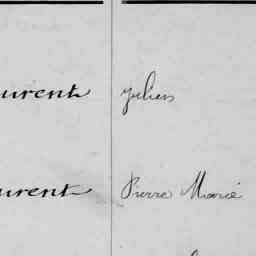 urent Julien
urent Pierre Marie